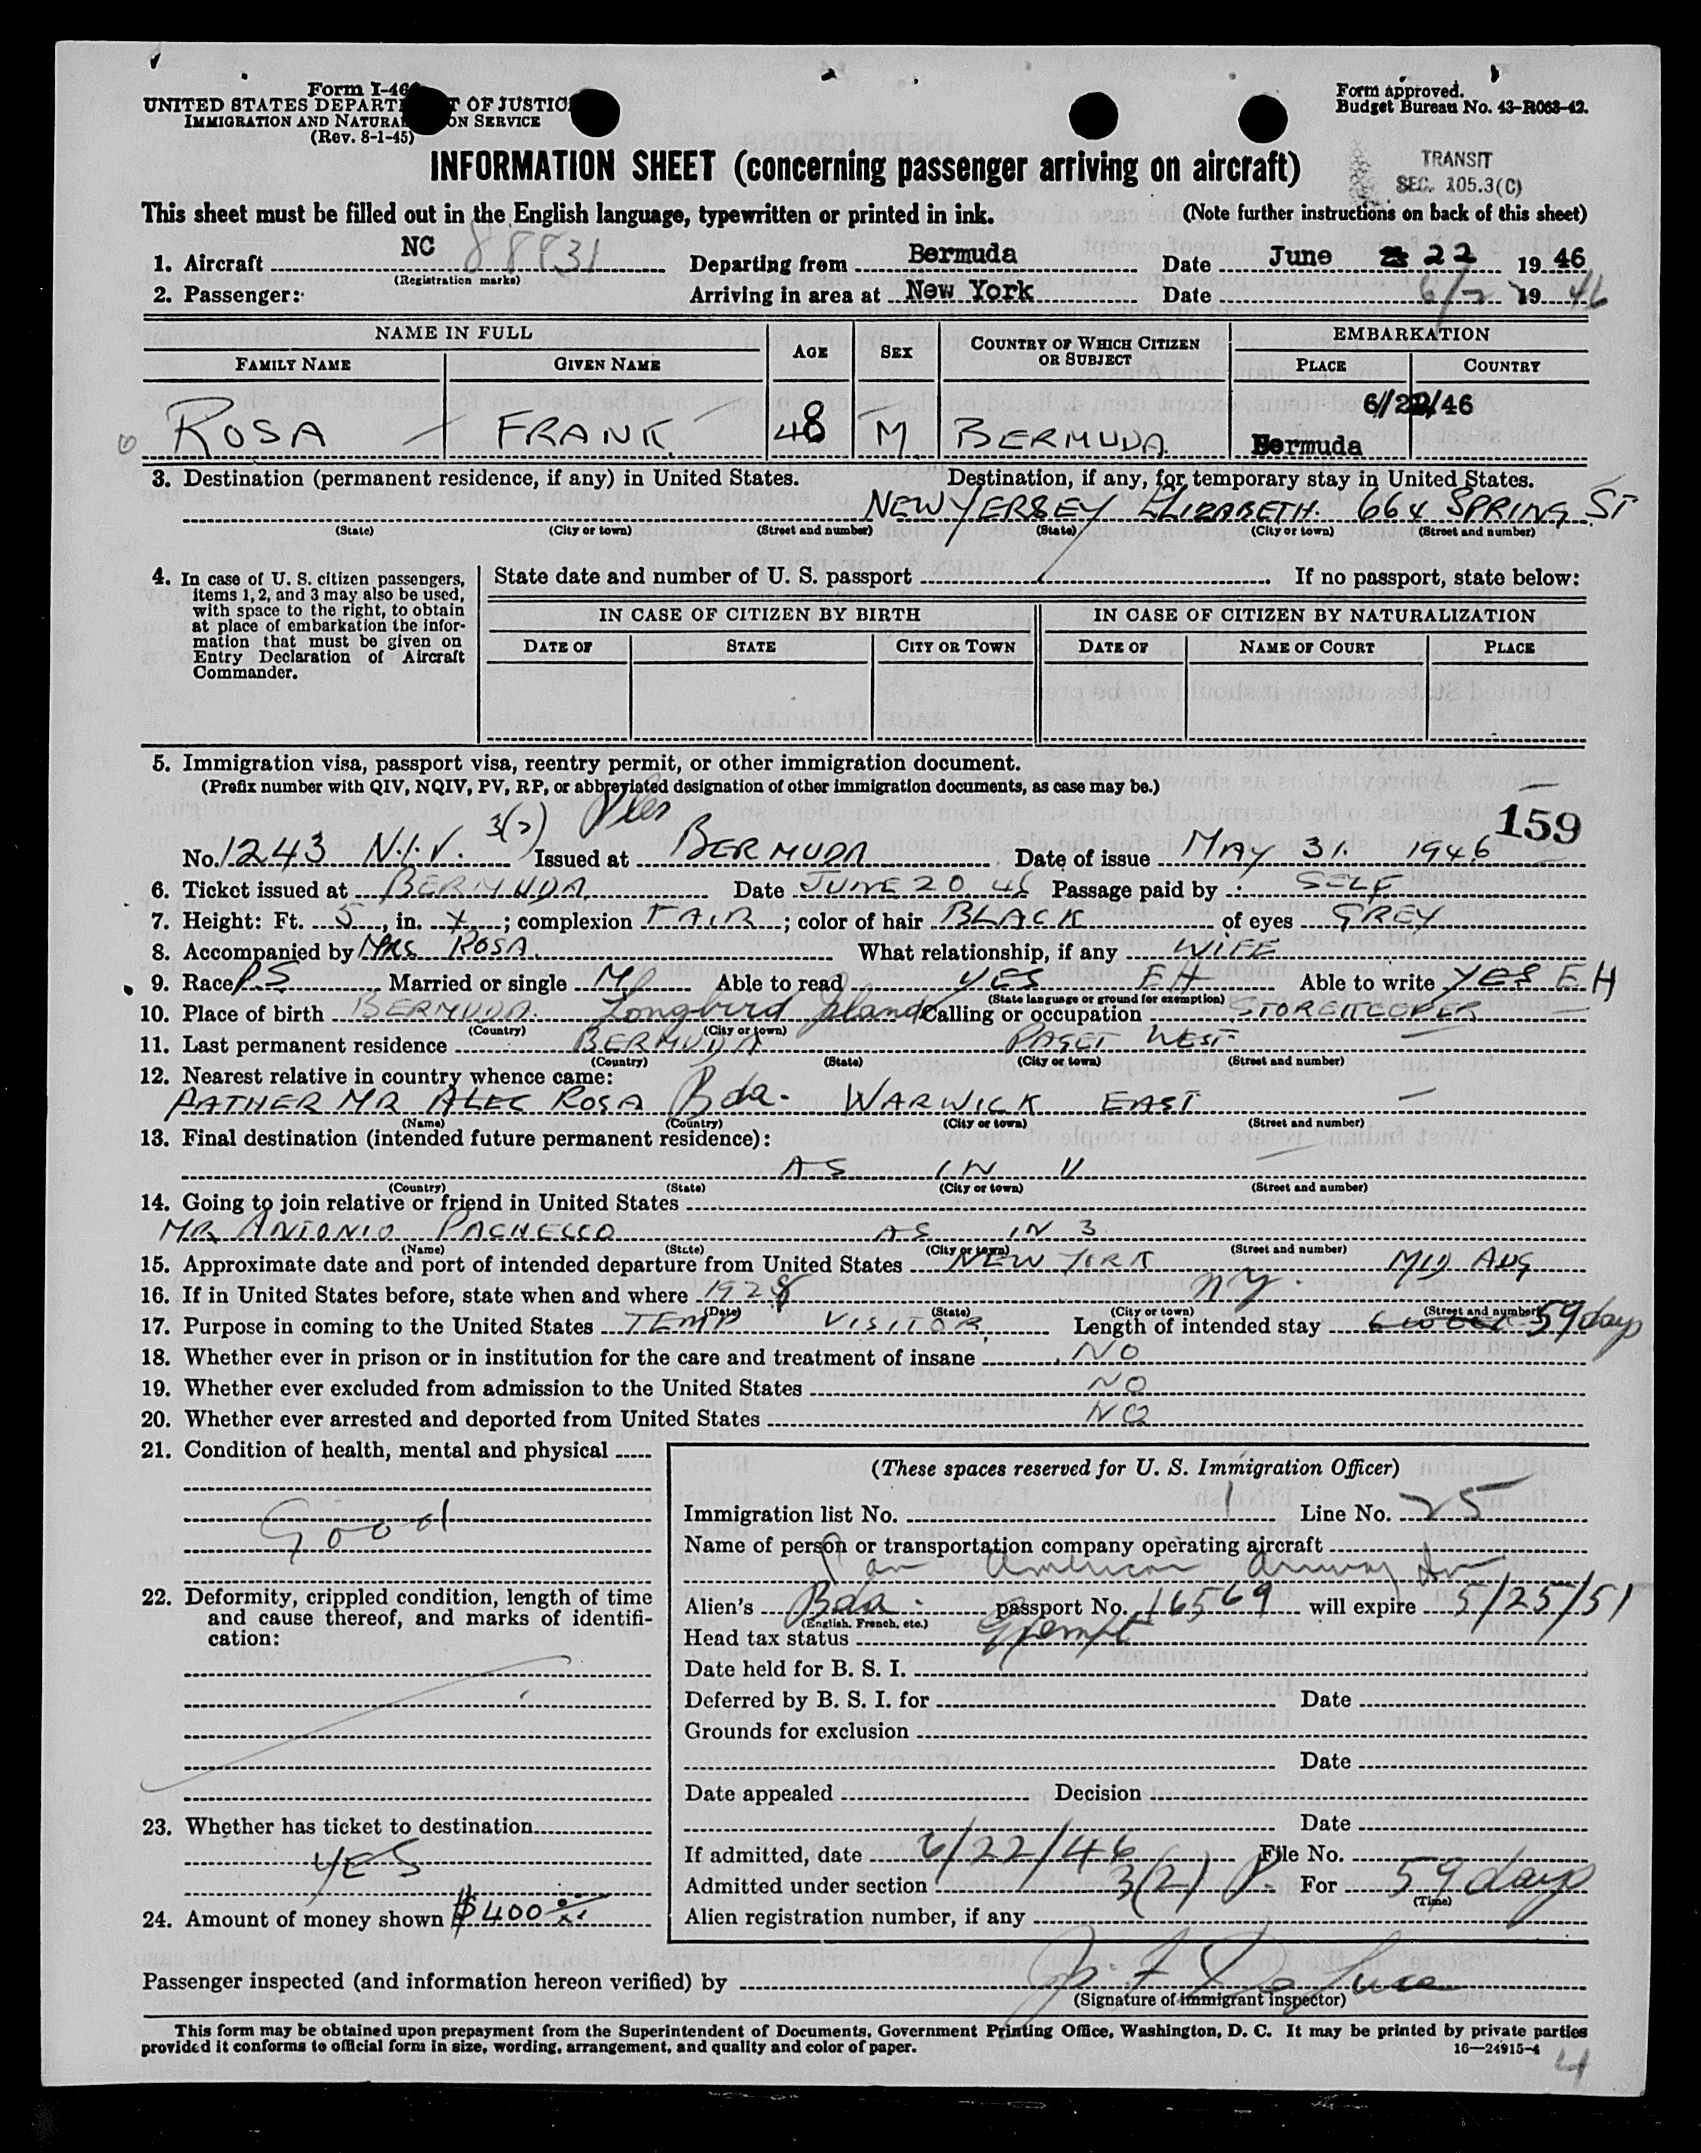 Form I-46
UNITED STATES DEPART T OF JUSTIC
IMMIGRATION AND NATURAL ON SERVICE
(Rev. 8-1-45)
Form approved.
Budget Bureau No. 43-R063-42.
INFORMATION SHEET (concerning passenger arriving on aircraft)
TRANSIT
SEC. 105.3(C)
This sheet must be filled out in the English language, typewritten or printed in ink. (Note further instructions on back of this sheet)
1. Aircraft NC 88831 Departing from Bermuda Date June 22 19 46
(Registration marks)
2. Passenger: Arriving in area at New York Date 6/22 19 46
NAME IN FULL AGE SEX COUNTRY OF WHICH CITIZEN OR SUBJECT EMBARKATION
FAMILY NAME GIVEN NAME PLACE COUNTRY
6/22/46
ROSA FRANK 48 M BERMUDA Bermuda
3. Destination (permanent residence, if any) in United States. Destination, if any, for temporary stay in United States.
NEW YERSEY ELIZABETH. 664 SPRING ST
(State) (City or town) (Street and number) (State) (City or town) (Street and number)
4. In case of U. S. citizen passengers, items 1, 2, and 3 may also be used, with space to the right, to obtain at place of embarkation the information that must be given on Entry Declaration of Aircraft Commander.
State date and number of U. S. passport If no passport, state below:
IN CASE OF CITIZEN BY BIRTH IN CASE OF CITIZEN BY NATURALIZATION
DATE OF STATE CITY OR TOWN DATE OF NAME OF COURT PLACE
5. Immigration visa, passport visa, reentry permit, or other immigration document.
(Prefix number with QIV, NQIV, PV, RP, or abbreviated designation of other immigration documents, as case may be.)
159
No. 1243 N.I.V. 3(2) Issued at BERMUDA Date of issue MAY 31. 1946
6. Ticket issued at BERMUDA Date JUNE 20 46 Passage paid by SELF
7. Height: Ft. 5, in. 4; complexion FAIR; color of hair BLACK of eyes GREY
8. Accompanied by MRS ROSA. What relationship, if any WIFE
9. Race PS Married or single M Able to read YES EH Able to write YES EH
(State language or ground for exemption)
10. Place of birth BERMUDA. Longbird Island Calling or occupation STOREKEEPER
(Country) (City or town)
11. Last permanent residence BERMUDA PAGET WEST
(Country) (State) (City or town) (Street and number)
12. Nearest relative in country whence came:
FATHER MR ALEC ROSA Bda. WARWICK EAST
(Name) (Country) (City or town) (Street and number)
13. Final destination (intended future permanent residence):
AS IN 11
(Country) (State) (City or town) (Street and number)
14. Going to join relative or friend in United States
MR ANTONIO PACHECCO AS IN 3
(Name) (State) (City or town) (Street and number)
15. Approximate date and port of intended departure from United States NEW YORK MID AUG
16. If in United States before, state when and where 1928 NY.
(Date) (State) (City or town) (Street and number)
17. Purpose in coming to the United States TEMP VISITOR. Length of intended stay 59 days
18. Whether ever in prison or in institution for the care and treatment of insane NO
19. Whether ever excluded from admission to the United States NO
20. Whether ever arrested and deported from United States NO
21. Condition of health, mental and physical
Good
22. Deformity, crippled condition, length of time and cause thereof, and marks of identification:
23. Whether has ticket to destination
YES
24. Amount of money shown $400
(These spaces reserved for U. S. Immigration Officer)
Immigration list No. 1 Line No. 25
Name of person or transportation company operating aircraft
Pan American Airway Inc
Alien's Bda. passport No. 16569 will expire 5/25/51
(English, French, etc.)
Head tax status Exempt
Date held for B. S. I.
Deferred by B. S. I. for Date
Grounds for exclusion
Date
Date appealed Decision
Date
If admitted, date 6/22/46 File No.
Admitted under section 3(2) P. For 59 days
(Time)
Alien registration number, if any
Passenger inspected (and information hereon verified) by
(Signature of immigrant inspector)
This form may be obtained upon prepayment from the Superintendent of Documents, Government Printing Office, Washington, D. C. It may be printed by private parties
provided it conforms to official form in size, wording, arrangement, and quality and color of paper.
16—24915-4
4